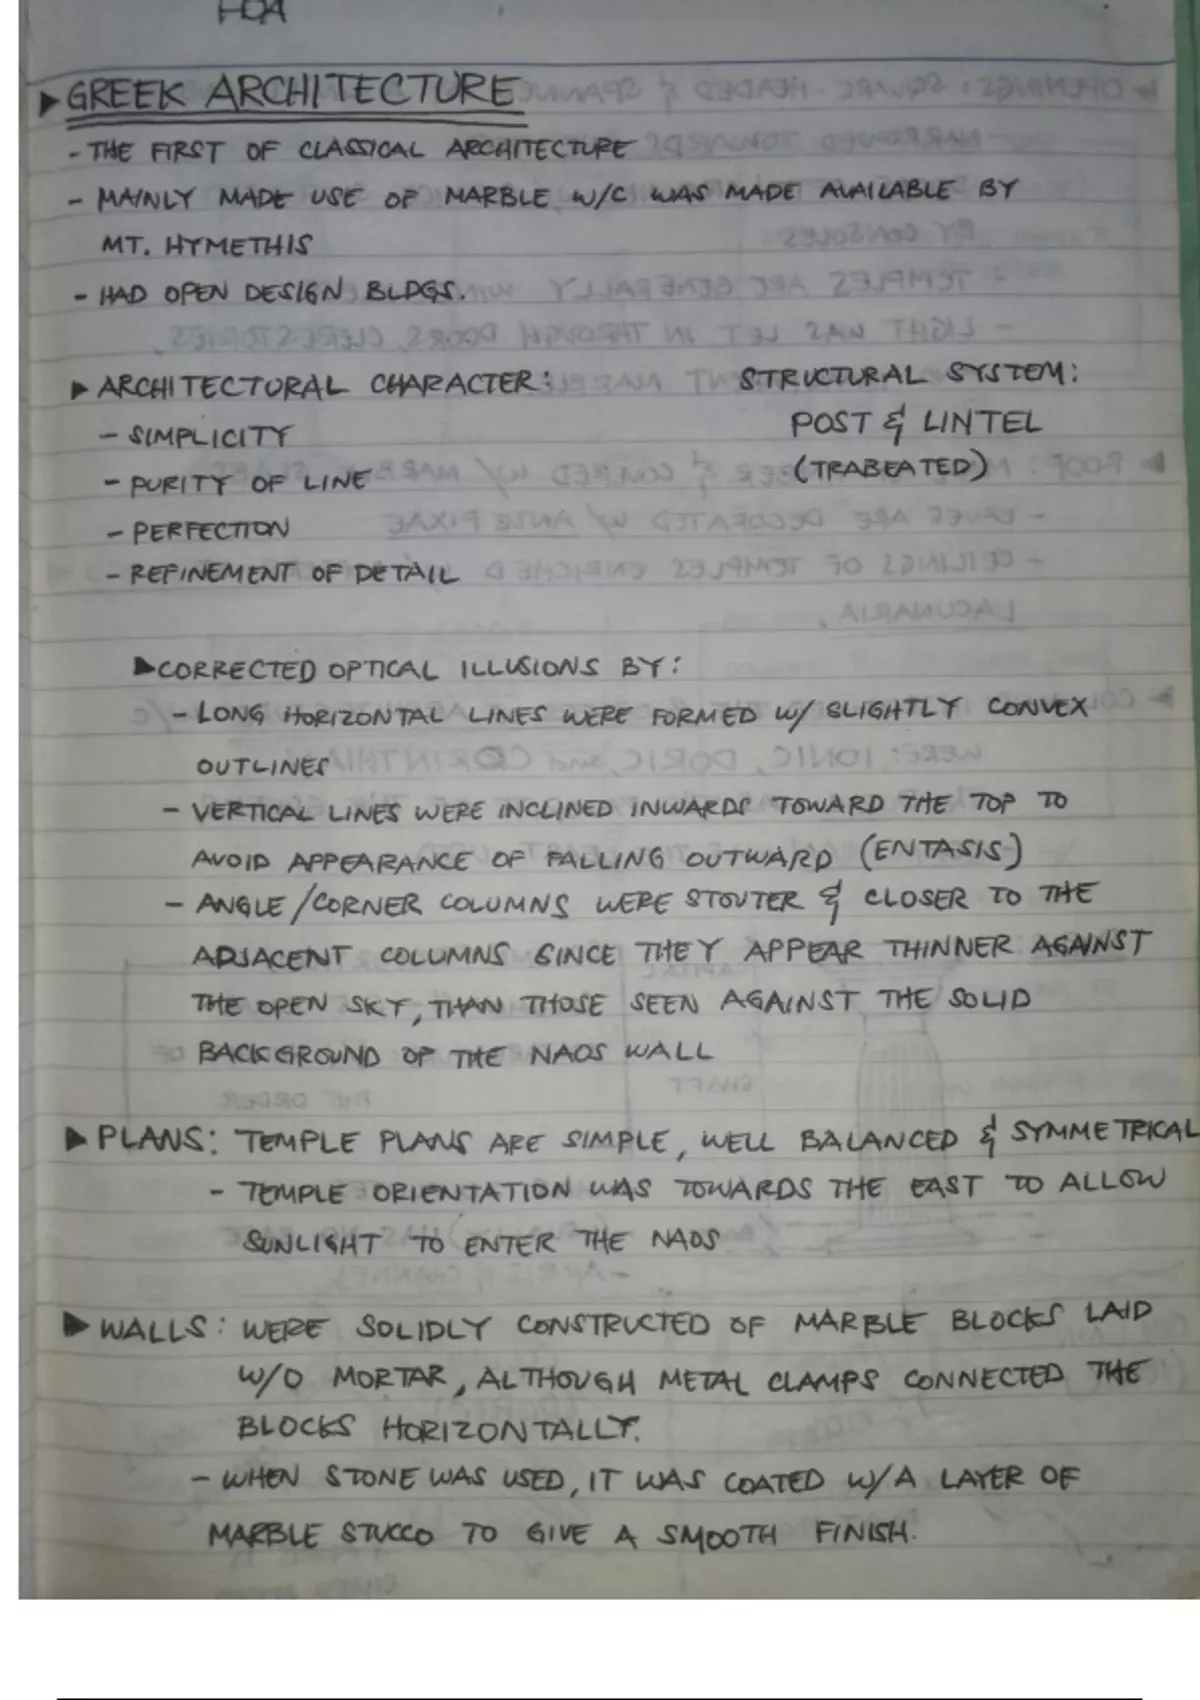 HOA
▶ GREEK ARCHITECTURE
- THE FIRST OF CLASSICAL ARCHITECTURE
- MAINLY MADE USE OF MARBLE W/C WAS MADE AVAILABLE BY
MT. HYMETHIS
- HAD OPEN DESIGN BLDGS.
▶ ARCHITECTURAL CHARACTER:
- SIMPLICITY
- PURITY OF LINE
- PERFECTION
- REFINEMENT OF DETAIL
STRUCTURAL SYSTEM:
POST & LINTEL
(TRABEATED)
▶ CORRECTED OPTICAL ILLUSIONS BY:
- LONG HORIZONTAL LINES WERE FORMED W/ SLIGHTLY CONVEX
OUTLINES
- VERTICAL LINES WERE INCLINED INWARDS TOWARD THE TOP TO
AVOID APPEARANCE OF FALLING OUTWARD (ENTASIS)
- ANGLE/CORNER COLUMNS WERE STOUTER & CLOSER TO THE
ADJACENT COLUMNS SINCE THEY APPEAR THINNER AGAINST
THE OPEN SKY, THAN THOSE SEEN AGAINST THE SOLID
BACKGROUND OF THE NAOS WALL
▶ PLANS: TEMPLE PLANS ARE SIMPLE, WELL BALANCED & SYMMETRICAL
- TEMPLE ORIENTATION WAS TOWARDS THE EAST TO ALLOW
SUNLIGHT TO ENTER THE NAOS
▶ WALLS: WERE SOLIDLY CONSTRUCTED OF MARBLE BLOCKS LAID
W/O MORTAR, ALTHOUGH METAL CLAMPS CONNECTED THE
BLOCKS HORIZONTALLY.
- WHEN STONE WAS USED, IT WAS COATED W/ A LAYER OF
MARBLE STUCCO TO GIVE A SMOOTH FINISH.